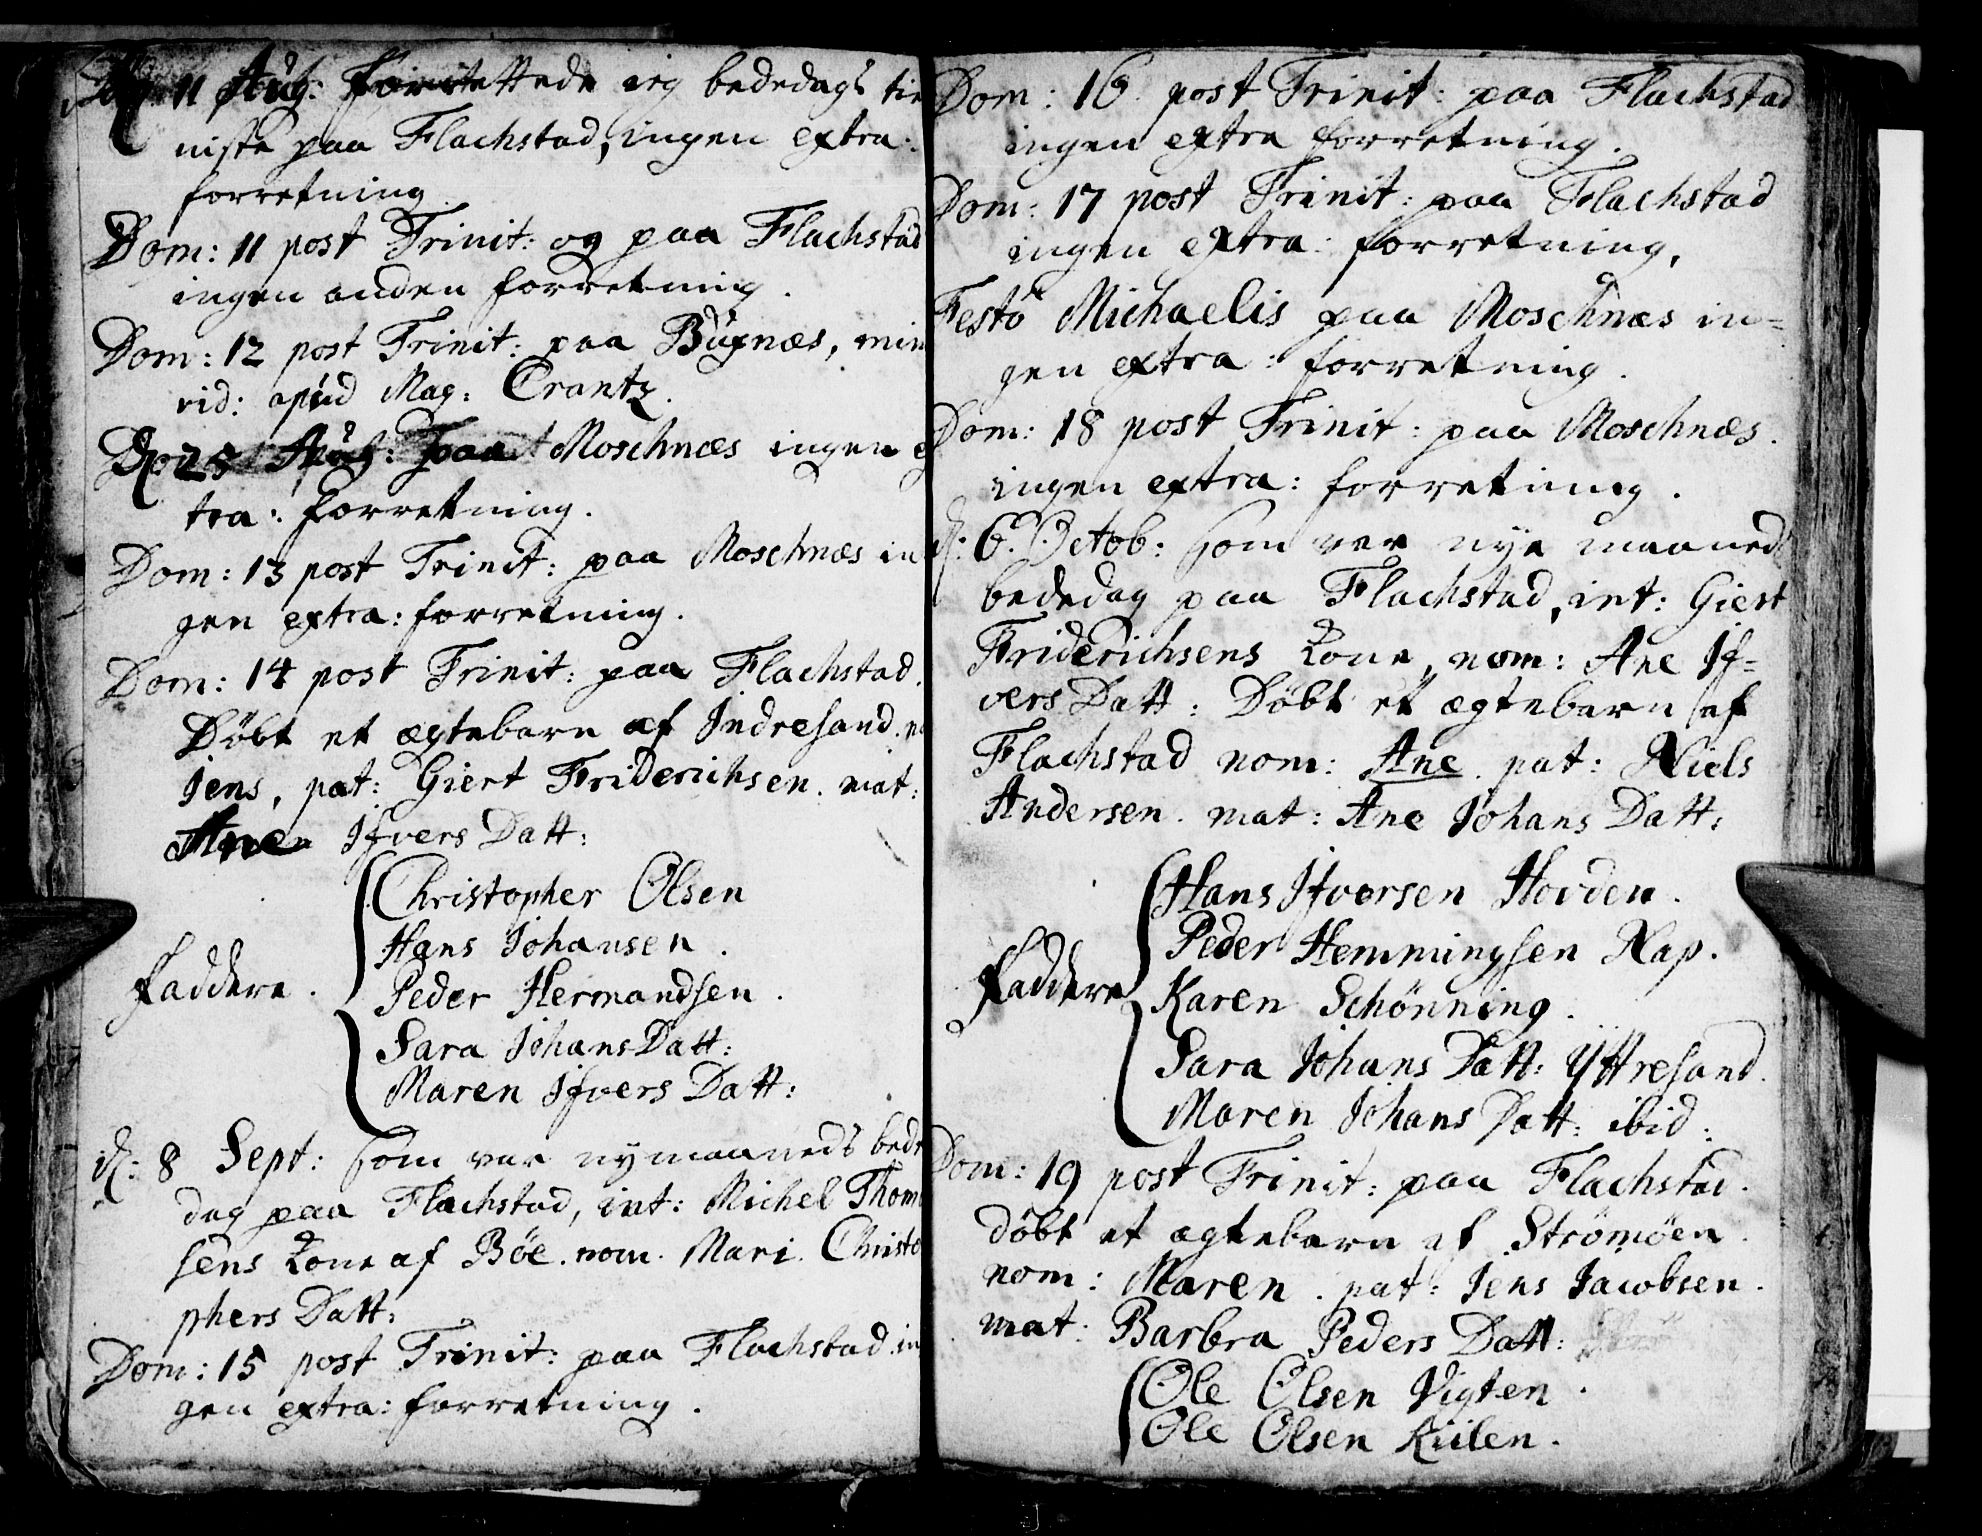 11 Aug: forrettede ieg bededags tie
niste paa Flachstad, ingen extra:
forretning.
Dom: 11 post Trinit: og paa Flachstad
ingen anden forretning.
Dom: 12 post Trinit: paa Buxnæs, min
vid: apud Mag: Crantz.
D. 25 Aug: paa Moschnæs ingen ex
tra: forretning.
Dom: 13 post Trinit: paa Moschnæs in
gen extra: forretning.
Dom: 14 post Trinit: paa Flachstad.
Döbt et ægtebarn af Indresand. no
Jens, pat: Giert Friderichsen. mat:
Ane Ifvers Datt:
Faddere.
Christopher Olsen
Hans Johansen.
Peder Hermandsen.
Sara Johans Datt:
Maren Ifvers Datt:
d: 8 Sept: som var nymaaneds bede
dag paa Flachstad, int: Michel Thom
sens Kone af Böe. nom. Mari Christo
phers Datt:
Dom: 15 post Trinit: paa Flachstad in
gen extra: forretning.
Dom: 16 post Trinit: paa Flachstad
ingen extra forretning.
Dom: 17 post Trinit: paa Flachstad
ingen extra: forretning.
Festo Michaelis paa Moschnæs in=
gen extra: forretning.
Dom: 18 post Trinit: paa Moschnæs.
ingen extra: forretning.
d: 6. Octob: som var nye maaneds
bededag paa Flachstad, int: Giert
Friderichsens Kone, nom: Ane If=
vers Datt: Döbt et ægtebarn af
Flachstad nom: Ane. pat: Niels
Andersen. mat: Ane Johans Datt:
Faddere
Hans Ifversen Hovden.
Peder Hemmingsen Nap.
Karen Schönning.
Sara Johans Datt: Yttresand.
Maren Johans Datt: ibid:
Dom: 19 post Trinit: paa Flachstad.
döbt et ægtebarn af Strömöen.
nom: Maren. pat: Jens Jacobsen.
mat: Barbra Peders Datt:
Ole Olsen Vigten.
Ole Olsen Kiilen.